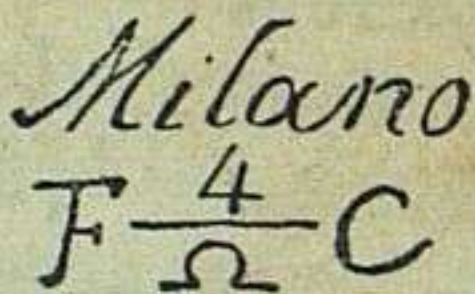 Milano
F 4/Ω C